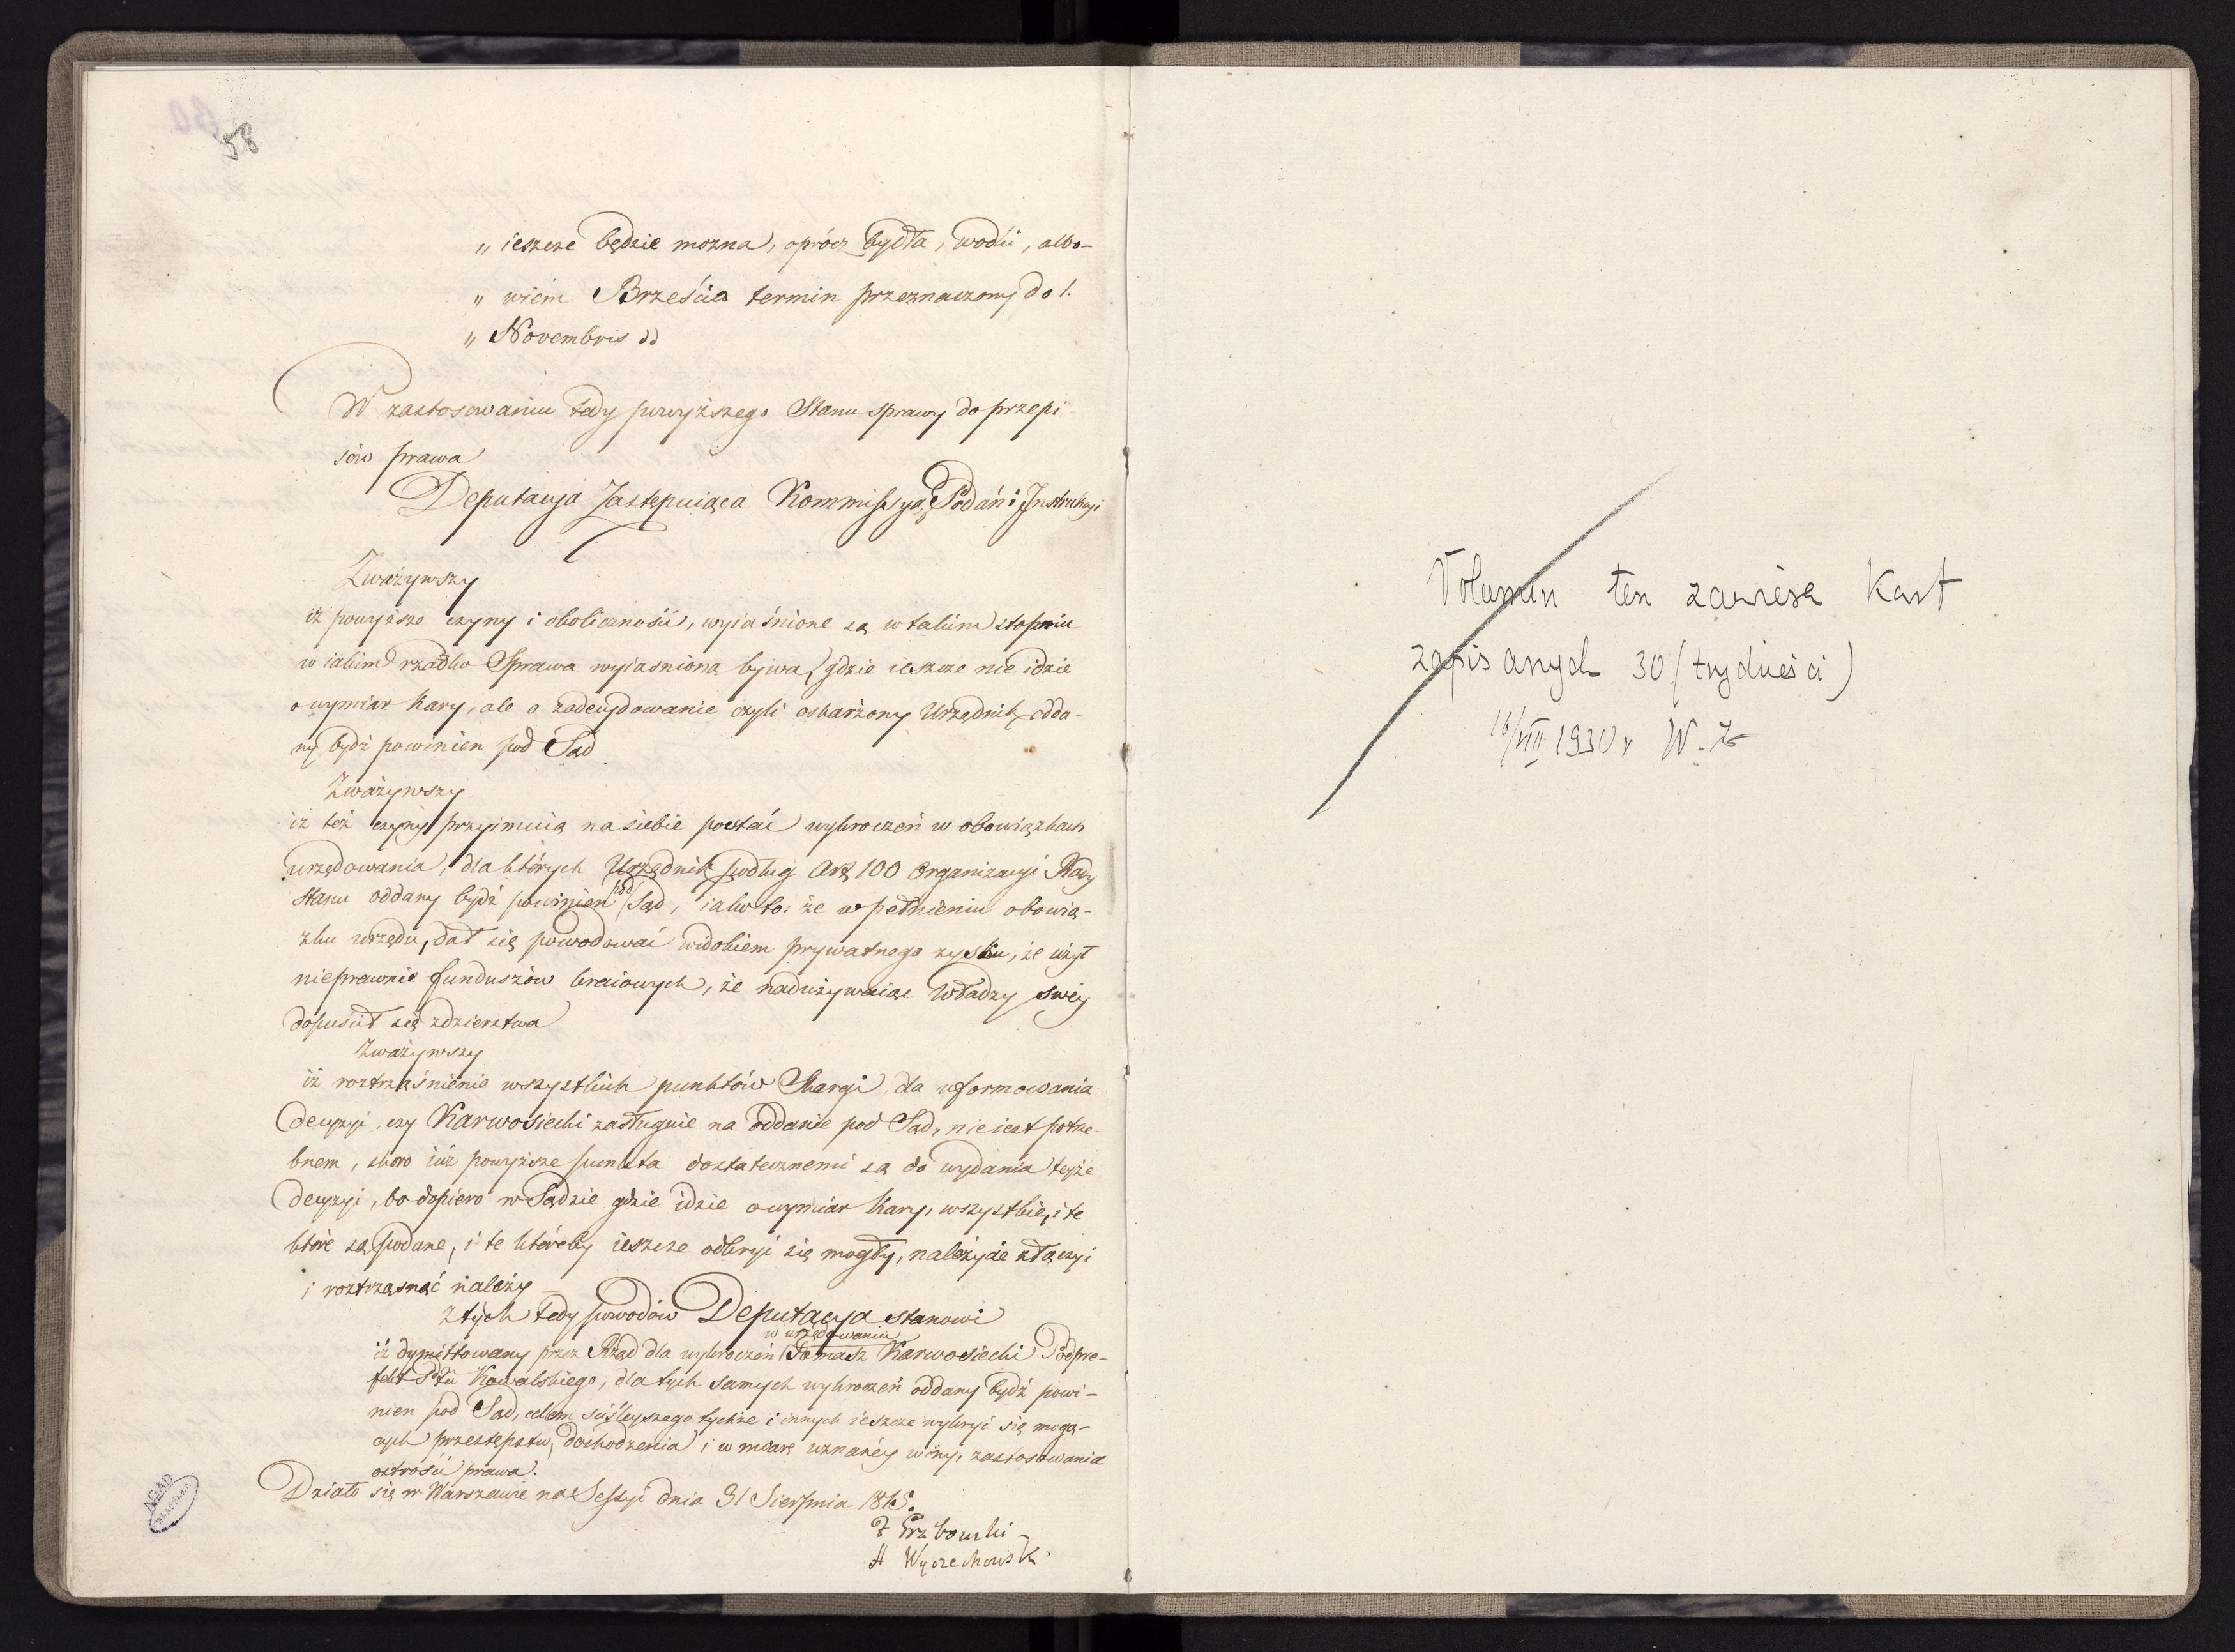 58
„ ieszcze będzie mozna, oprócz bydła, wodki, albo-
„ wiem Brześcia termin przeznaczony do 1.
„ Novembris dd
W zastosowaniu tedy powyższego Stanu sprawy do przepi
sów prawa
Deputacya Zastępuiąca Kommissyą Podań i Instrukcyi
Zważywszy
iż powyższe czyny i okoliczności, wyiaśnione są w takim stopniu
w iakim rzadko Sprawa wyiasniona bywa, gdzie ieszcze nie idzie
o wymiar Kary, ale o zadecydowanie czyli oskarżony Urzędnik, odda-
ny bydź powinien pod Sąd
Zważywszy
iż też czyny przyimuią na siebie postać wykroczeń w obowiązkach
urzędowania, dla których Urzędnik podług Art 100 Organizacyi Rady
Stanu oddany bydź powinien pod Sąd, iako to: że w pełnieniu obowią-
zku urzędu, dał się powodować widokiem prywatnego zysku, że użył
nieprawnie funduszów kraiowych, że nadużywaiąc Władzy swéy
dopuścił się zdzierstwa
Zważywszy
iż roztrząśnienie wszystkich punktów Skargi, dla uformowania
decyzyi, czy Karwosiecki zasługuie na oddanie pod Sąd, nie iest potrze-
bnem, skoro iuż powyższe punkta dostatecznemi są do wydania teyże
decyzyi, bo dopiero w Sądzie gdzie idzie o wymiar Kary, wszystkie, i te
które są podane, i te któreby ieszcze odkryć się mogły, należycie złączyć
i roztrząsnąć należy
Z tych tedy powodów Deputacya stanowi
iż dymittowany przez Rząd dla wykroczeń w urzędowaniu Tomasz Karwosiecki Podpre-
fekt Pttu Kowalskiego, dla tych samych wykroczeń oddany bydź powi-
nien pod Sąd, celem ściśleyszego tychże i innych ieszcze wykryć się mogą-
cych przestępstw, dochodzenia i w miarę uznanéy winy, zastosowania
ostrości prawa.
Działo się w Warszawie na Sessyi dnia 31 Sierpnia 1815.
Wyczechowski
Volumin ten zawiera Kart
zapisanych 30 (trydzieści)
16/VII 1930 r W.